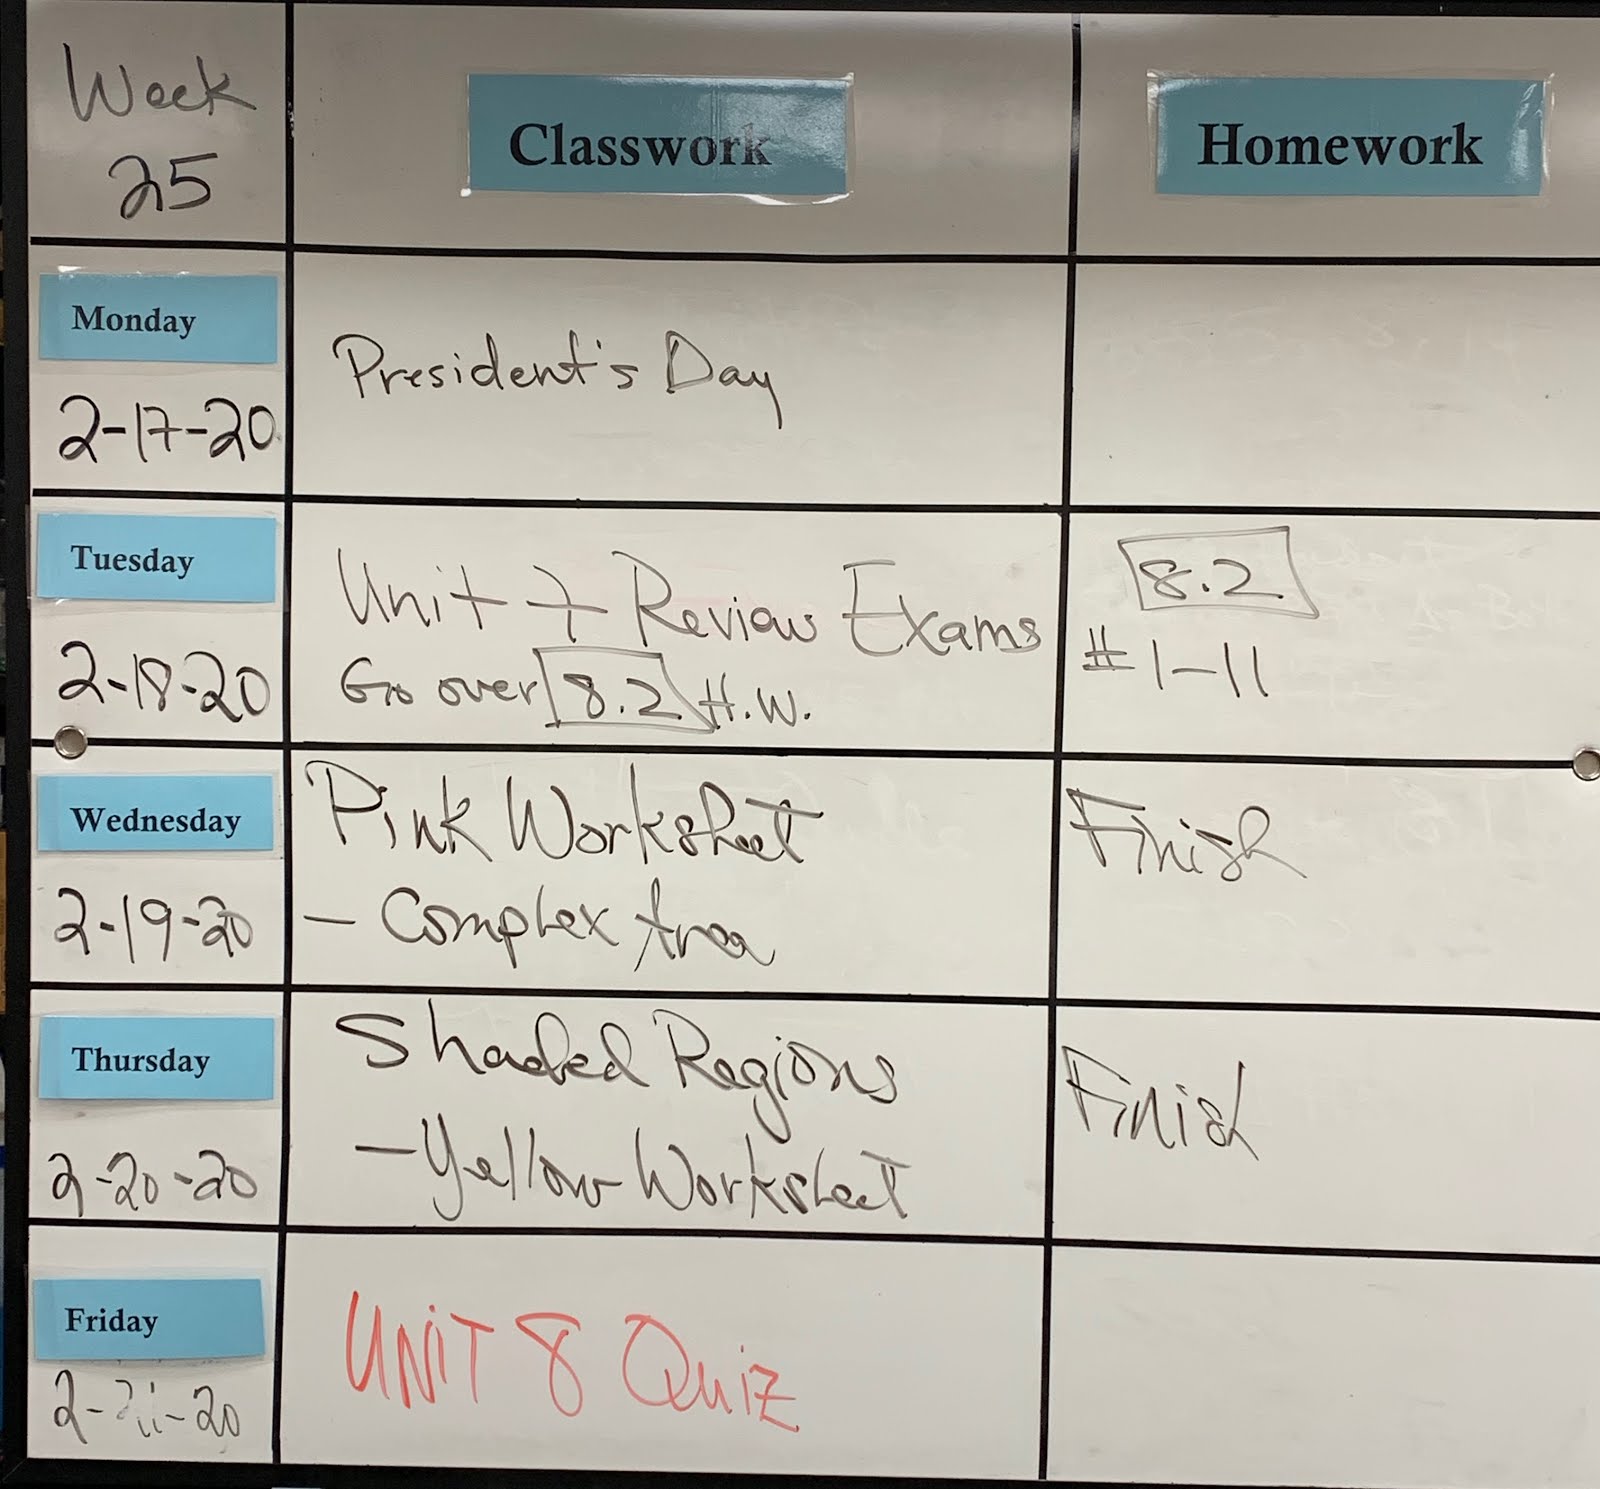 Week
25
Classwork
Homework
Monday
2-17-20
President's Day
Tuesday
2-18-20
Unit 7 Review Exams
Go over 8.2 H.W.
8.2
#1-11
Wednesday
2-19-20
Pink Worksheet
- Complex Area
Finish
Thursday
2-20-20
Shaded Regions
- Yellow Worksheet
Finish
Friday
2-21-20
UNIT 8 Quiz